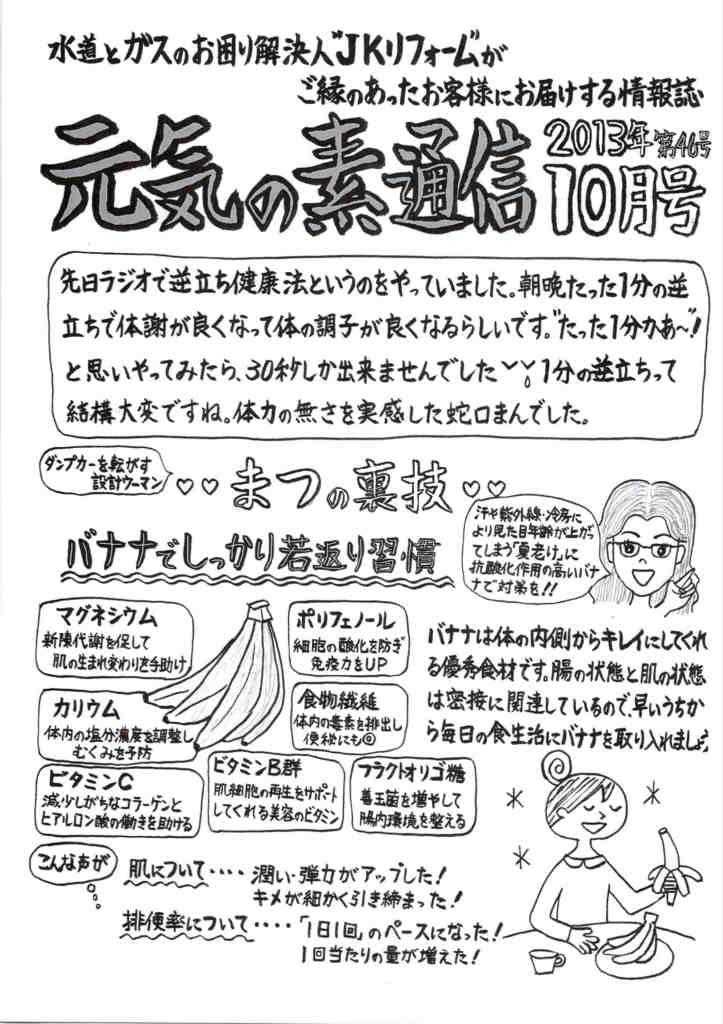 水道とガスのお困り解決人"JKリフォーム"が
ご縁のあったお客様にお届けする情報誌
元気の素通信
2013年 第46号
10月号
先日ラジオで逆立ち健康法というのをやっていました。朝晩たった1分の逆
立ちで体謝が良くなって体の調子が良くなるらしいです。"たった1分かあ〜"!
と思いやってみたら、30秒しか出来ませんでした 1分の逆立ちって
結構大変ですね。体力の無さを実感した蛇口まんでした。
ダンプカーを転がす
設計ウーマン
♡♡ まつの裏技 ♡♡
バナナでしっかり若返り習慣
汗や紫外線・冷房に
より見た目年齢が上がっ
てしまう「夏老け」に
抗酸化作用の高いバナ
ナで対策を!!
マグネシウム
新陳代謝を促して
肌の生まれ変わりを手助け
ポリフェノール
細胞の酸化を防ぎ
免疫力をUP
カリウム
体内の塩分濃度を調整し
むくみを予防
食物繊維
体内の毒素を排出し
便秘にも◎
バナナは体の内側からキレイにしてくれ
る優秀食材です。腸の状態と肌の状態
は密接に関連しているので、早いうちか
ら毎日の食生活にバナナを取り入れましょう
ビタミンC
減少しがちなコラーゲンと
ヒアルロン酸の働きを助ける
ビタミンB群
肌細胞の再生をサポート
してくれる美容のビタミン
フラクトオリゴ糖
善玉菌を増やして
腸内環境を整える
こんな声が
肌について・・・・潤い・弾力がアップした!
キメが細かく引き締まった!
排便率について・・・・「1日1回」のペースになった!
1回当たりの量が増えた!